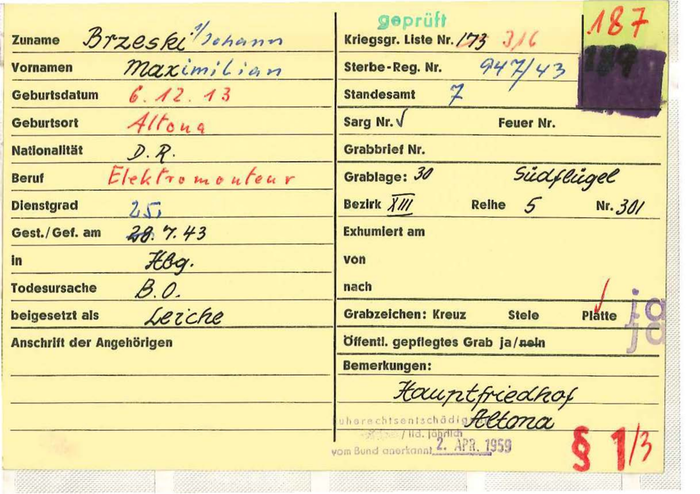 geprüft
187
Zuname Brzeski Johann
Kriegsgr. Liste Nr. 173 316
Vornamen Maximilian
Sterbe-Reg. Nr. 947/43
Geburtsdatum 6.12.13
Standesamt 7
Geburtsort Altona
Sarg Nr. √ Feuer Nr.
Nationalität D.R.
Grabbrief Nr.
Beruf Elektromonteur
Grablage: 30 Südflügel
Dienstgrad
Bezirk XIII Reihe 5 Nr. 301
Gest./Gef. am 7.43
Exhumiert am
in Hbg.
von
Todesursache B.O.
nach
beigesetzt als Leiche
Grabzeichen: Kreuz Stele Platte ja
Anschrift der Angehörigen
Öffentl. gepflegtes Grab ja/nein ja
Bemerkungen:
Hauptfriedhof
Altona
uherechtsentschädig
/ lfd. jährlich
vom Bund anerkannt 2. APR. 1959
§ 1/3